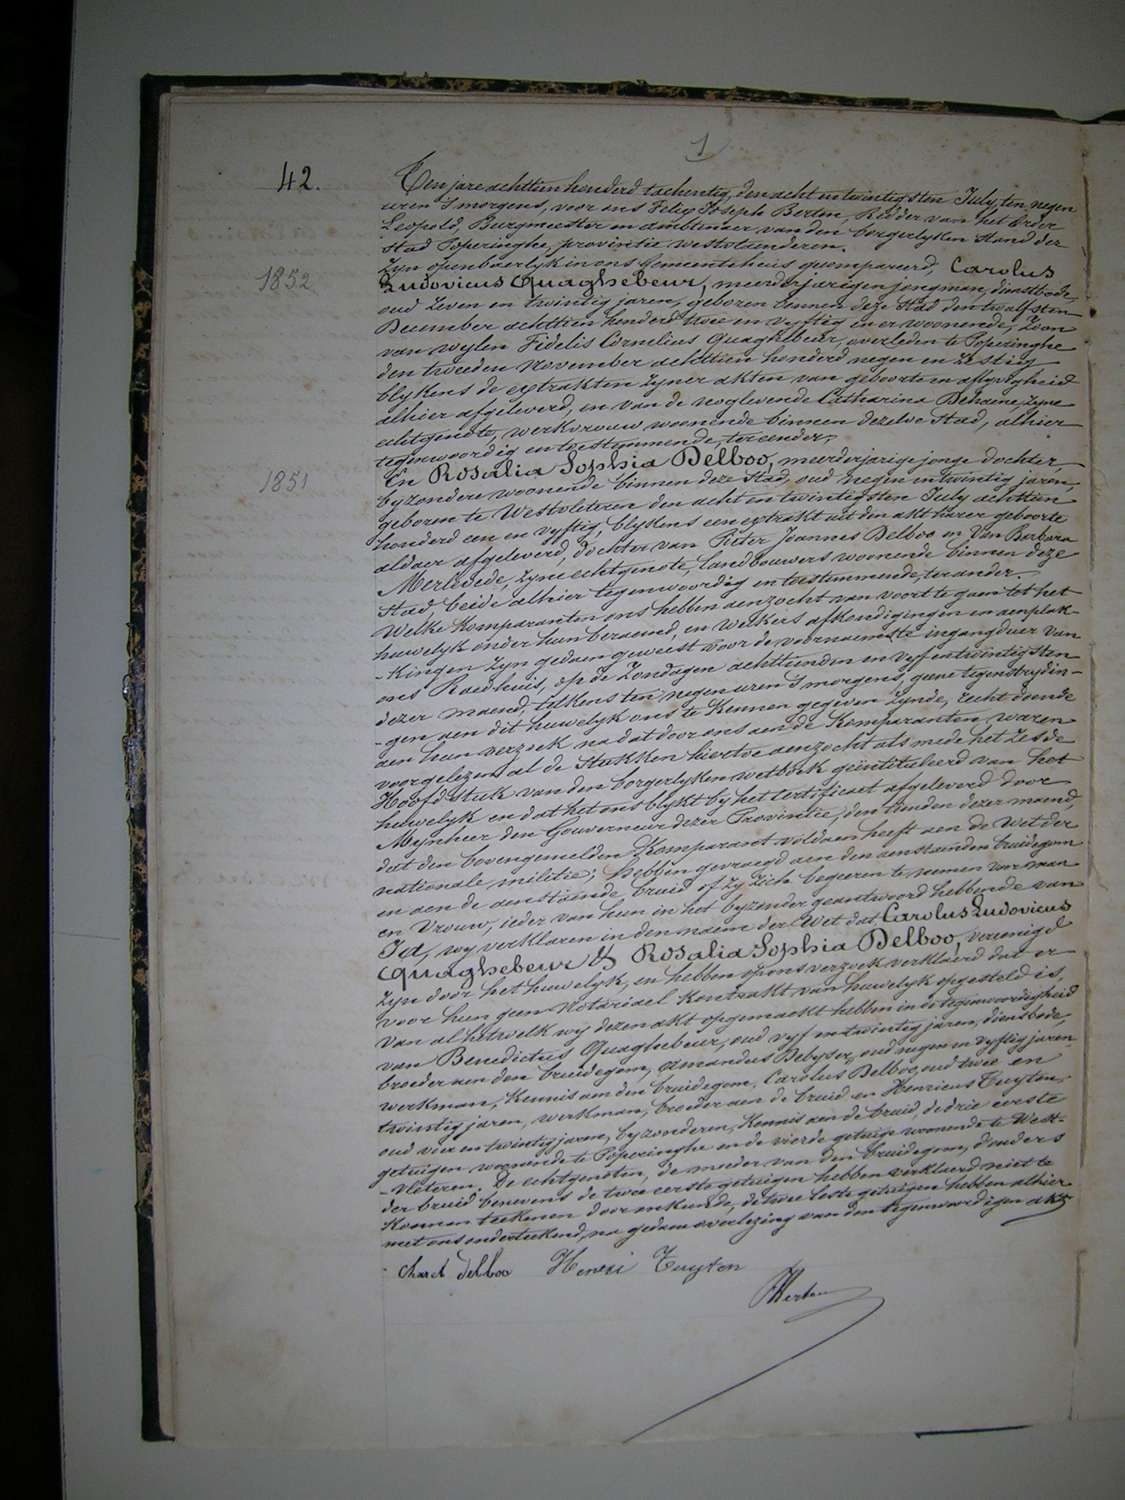 1
42.
Ten jare achttien honderd tachentig, den acht en twintigsten July, ten negen
uren 's morgens, voor ons Felix Joseph Berten, Ridder van het Order
Leopold, Burgmeester en ambtenaer van den borgerlyken stand der
stad Poperinghe, provintie westvlaenderen.
Zyn openbaerlyk in ons Gemeentehuis gecompareerd, Carolus
1852
Ludovicus Quaghebeur, meerderjarigen jongman, dienstbode,
oud zeven en twintig jaren, geboren binnen deze Stad den twaelfsten
December achttien honderd twee en vyftig en er woonende, Zoon
van wylen Fidelis Cornelius Quaghebeur, overleden te Poperinghe
den tweeden November achttien honderd negen en zestig
blykens de extrakten zyner akten van geboorte en aflyvigheid
alhier afgeleverd, en van de nog levende Catharina Dehaene, zyne
echtgenote, werkvrouw, woonende binnen dezelve Stad, alhier
tegenwoordig en toestemmende, ter eender,
En Rosalia Sophia Delboo, meerderjarige jonge dochter,
1851
byzondere woonende binnen deze Stad, oud negen en twintig jaren,
geboren te Westvleteren den acht en twintigsten July achttien
honderd een en vyftig, blykens een extrakt uit den akt harer geboorte
aldaer afgeleverd, dochter van Pieter Joannes Delboo en Van Barbara
Merlevede, zyne echtgenote, landbouwers woonende binnen deze
Stad, beide alhier tegenwoordig en toestemmende, ter ander.
Welke Komparanten ons hebben aenzocht van voort te gaen tot het
huwelyk onder hun beraemd, en welkers afkondigingen en aenplak-
-kingen zyn gedaen geweest voor de voornaemste ingangdeur van
ons Raedhuis, op de Zondagen achttienden en vyf en twintigsten
dezer maend, telkens ten negen uren 's morgens, geene tegenstrydin-
-gen aen dit huwelyk ons te kennen gegeven zynde, recht doende
aen hun verzoek na dat door ons aen de Komparanten waren
voorgelezen al de Stukken hiertoe aenzocht als mede het Zesde
Hoofdstuk van den borgerlyken wetboek geintituleerd van het
huwelyk en dat het ons blykt by het certificaet afgeleverd door
Mynheer den Gouverneur dezer Provintie, den tienden dezer maend,
dat den bovengemelden Komparant voldaen heeft aen de Wet der
nationale militie; Hebben gevraegd aen den aenstaenden bruidegom
en aen de aenstaende bruid of zy zich begeeren te nemen voor man
en Vrouw, ieder van hun in het byzonder geantwoord hebbende van
Ja, wy verklaren in den naem der Wet dat Carolus Ludovicus
Quaghebeur & Rosalia Sophia Delboo, vereenigd
zyn door het huwelyk, en hebben op ons verzoek verklaerd dat er
voor hun geen Notariael Kontrakt van huwelyk opgesteld is.
Van al hetwelk wy dezen akt opgemaekt hebben in de tegenwoordigheid
van Benedictus Quaghebeur, oud vyf en twintig jaren, dienstbode,
broeder aen den bruidegom, Amandus Debyser, oud negen en vyftig jaren
werkman, Kennis aen den bruidegom, Carolus Delboo, oud twee en
twintig jaren, werkman, broeder aen de bruid en Henricus Tuyten,
oud vier en twintig jaren, byzonderen, Kennis aen de bruid, de drie eerste
getuigen woonende te Poperinghe en de vierde getuige woonende te West-
-vleteren. De echtgenoten, de moeder van den bruidegom, d'ouders
der bruid benevens de twee eerste getuigen hebben verklaerd niet te
konnen teekenen door onkunde, de twee leste getuigen hebben alhier
met ons onderteekend, na gedane voorlezing van den tegenwoordigen akt,
Charel delboo Henri Tuyten
Berten